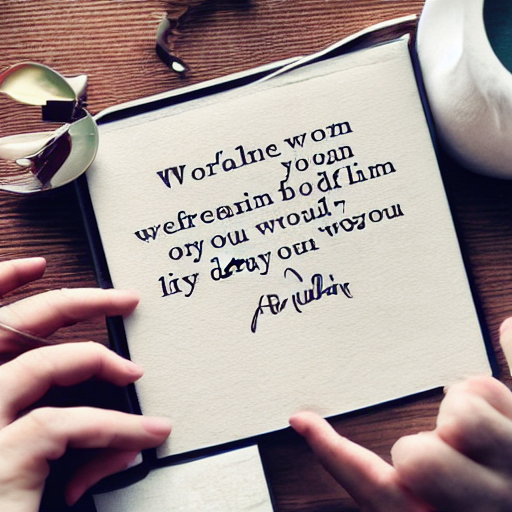 Woralne wom
yooan
wefrearim bodflim
ory ou would7
liy deray our wozou